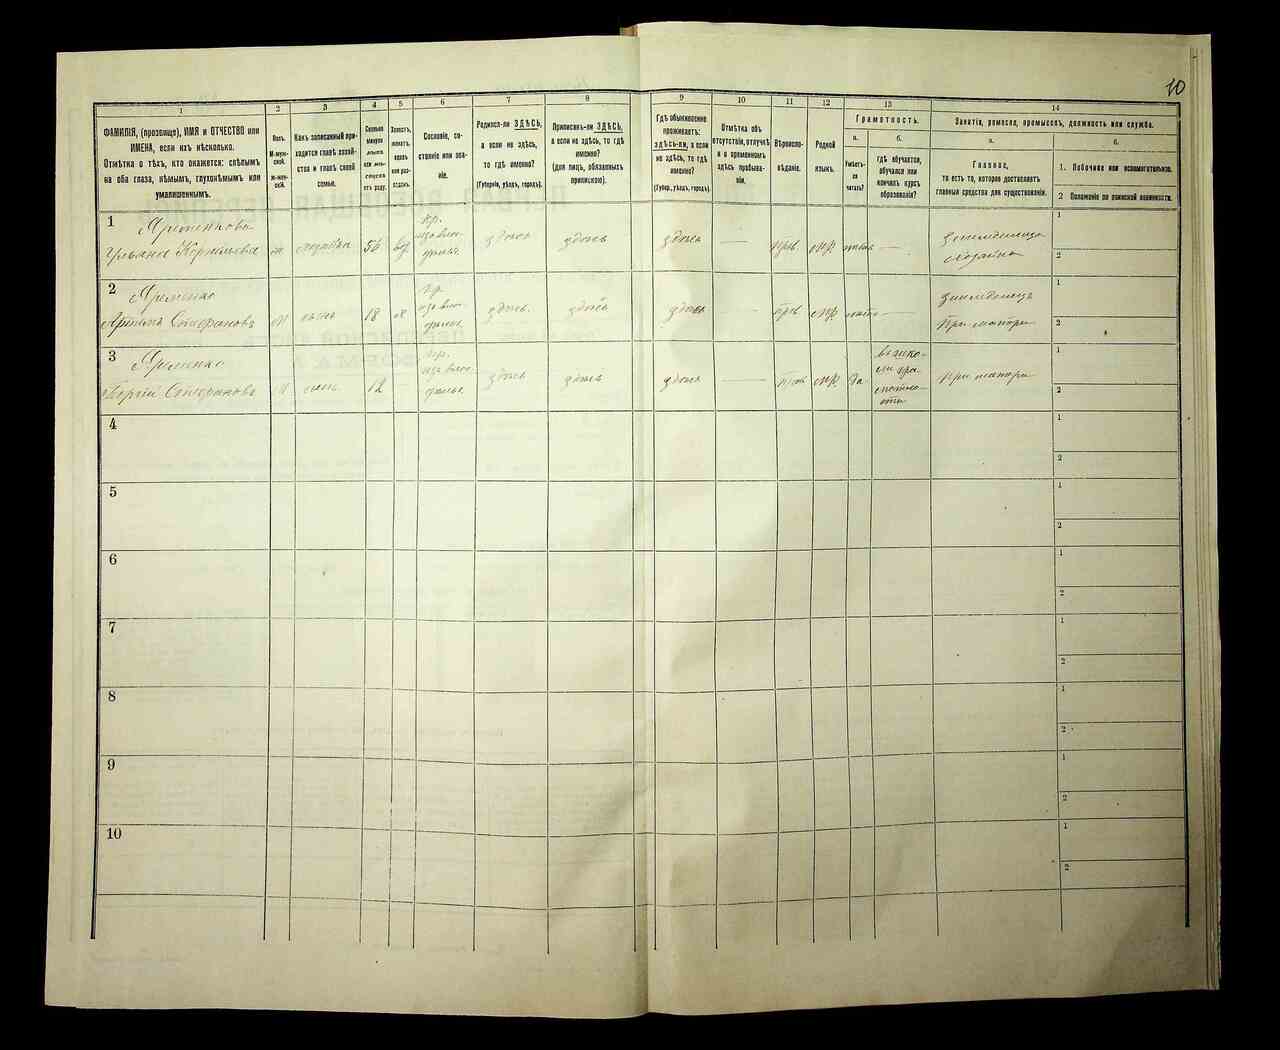 10
1
2
3
4
5
6
7
8
9
10
11
12
13
14
ФАМИЛІЯ, (прозвище), ИМЯ и ОТЧЕСТВО или
ИМЕНА, если ихъ нѣсколько.
Отмѣтка о тѣхъ, кто окажется: слѣпымъ
на оба глаза, нѣмымъ, глухонѣмымъ или
умалишеннымъ.
Полъ.
М-муж-
ской.
ж-жен-
скій.
Какъ записанный при-
ходится главѣ хозяй-
ства и главѣ своей
семьи.
Сколько
минуло
лѣтъ
или мѣ-
сяцевъ
отъ роду.
Холостъ,
женатъ,
вдовъ
или раз-
веденъ.
Сословіе, со-
стояніе или зва-
ніе.
Родился-ли ЗДѢСЬ,
а если не здѣсь,
то гдѣ именно?
(Губернія, уѣздъ, городъ).
Приписанъ-ли ЗДѢСЬ,
а если не здѣсь, то гдѣ
именно?
(для лицъ, обязанныхъ
припискою).
Гдѣ обыкновенно
проживаетъ:
ЗДѢСЬ-ли, а если
не здѣсь, то гдѣ
именно?
(Губер., уѣздъ, городъ).
Отмѣтка объ
отсутствіи, отлучкѣ
и о временномъ
здѣсь пребыва-
ніи.
Вѣроиспо-
вѣданіе.
Родной
языкъ.
Грамотность.
а.
Умѣетъ-
ли
читать?
б.
гдѣ обучается,
обучался или
кончилъ курсъ
образованія?
Занятіе, ремесло, промыселъ, должность или служба.
а.
Главное,
то есть то, которое доставляетъ
главныя средства для существованія.
б.
1. Побочное или вспомогательное.
2 Положеніе по воинской повинности.
1
Яременкова
Ульяна Корнильева
ж
хозяйка
56
вд
кр.
изъ вла-
дѣльч.
здѣсь
здѣсь
здѣсь
—
прав
мр
нѣтъ
—
хозяйка
1
2
2
Яременко
Артемъ Стефановъ
М
сынъ
18
х
кр.
изъ вла-
дѣльч.
здѣсь
здѣсь
здѣсь
—
прав
мр
—
земледѣлецъ
При матери
1
2
3
Яременко
Георгій Стефановъ
М
сынъ
12
—
кр.
изъ вла-
дѣльч.
здѣсь
здѣсь
здѣсь
—
прав
мр
да
въ шко-
лѣ гра-
мотно-
сти
При матери
1
2
4
1
2
5
1
2
6
1
2
7
1
2
8
1
2
9
1
2
10
1
2